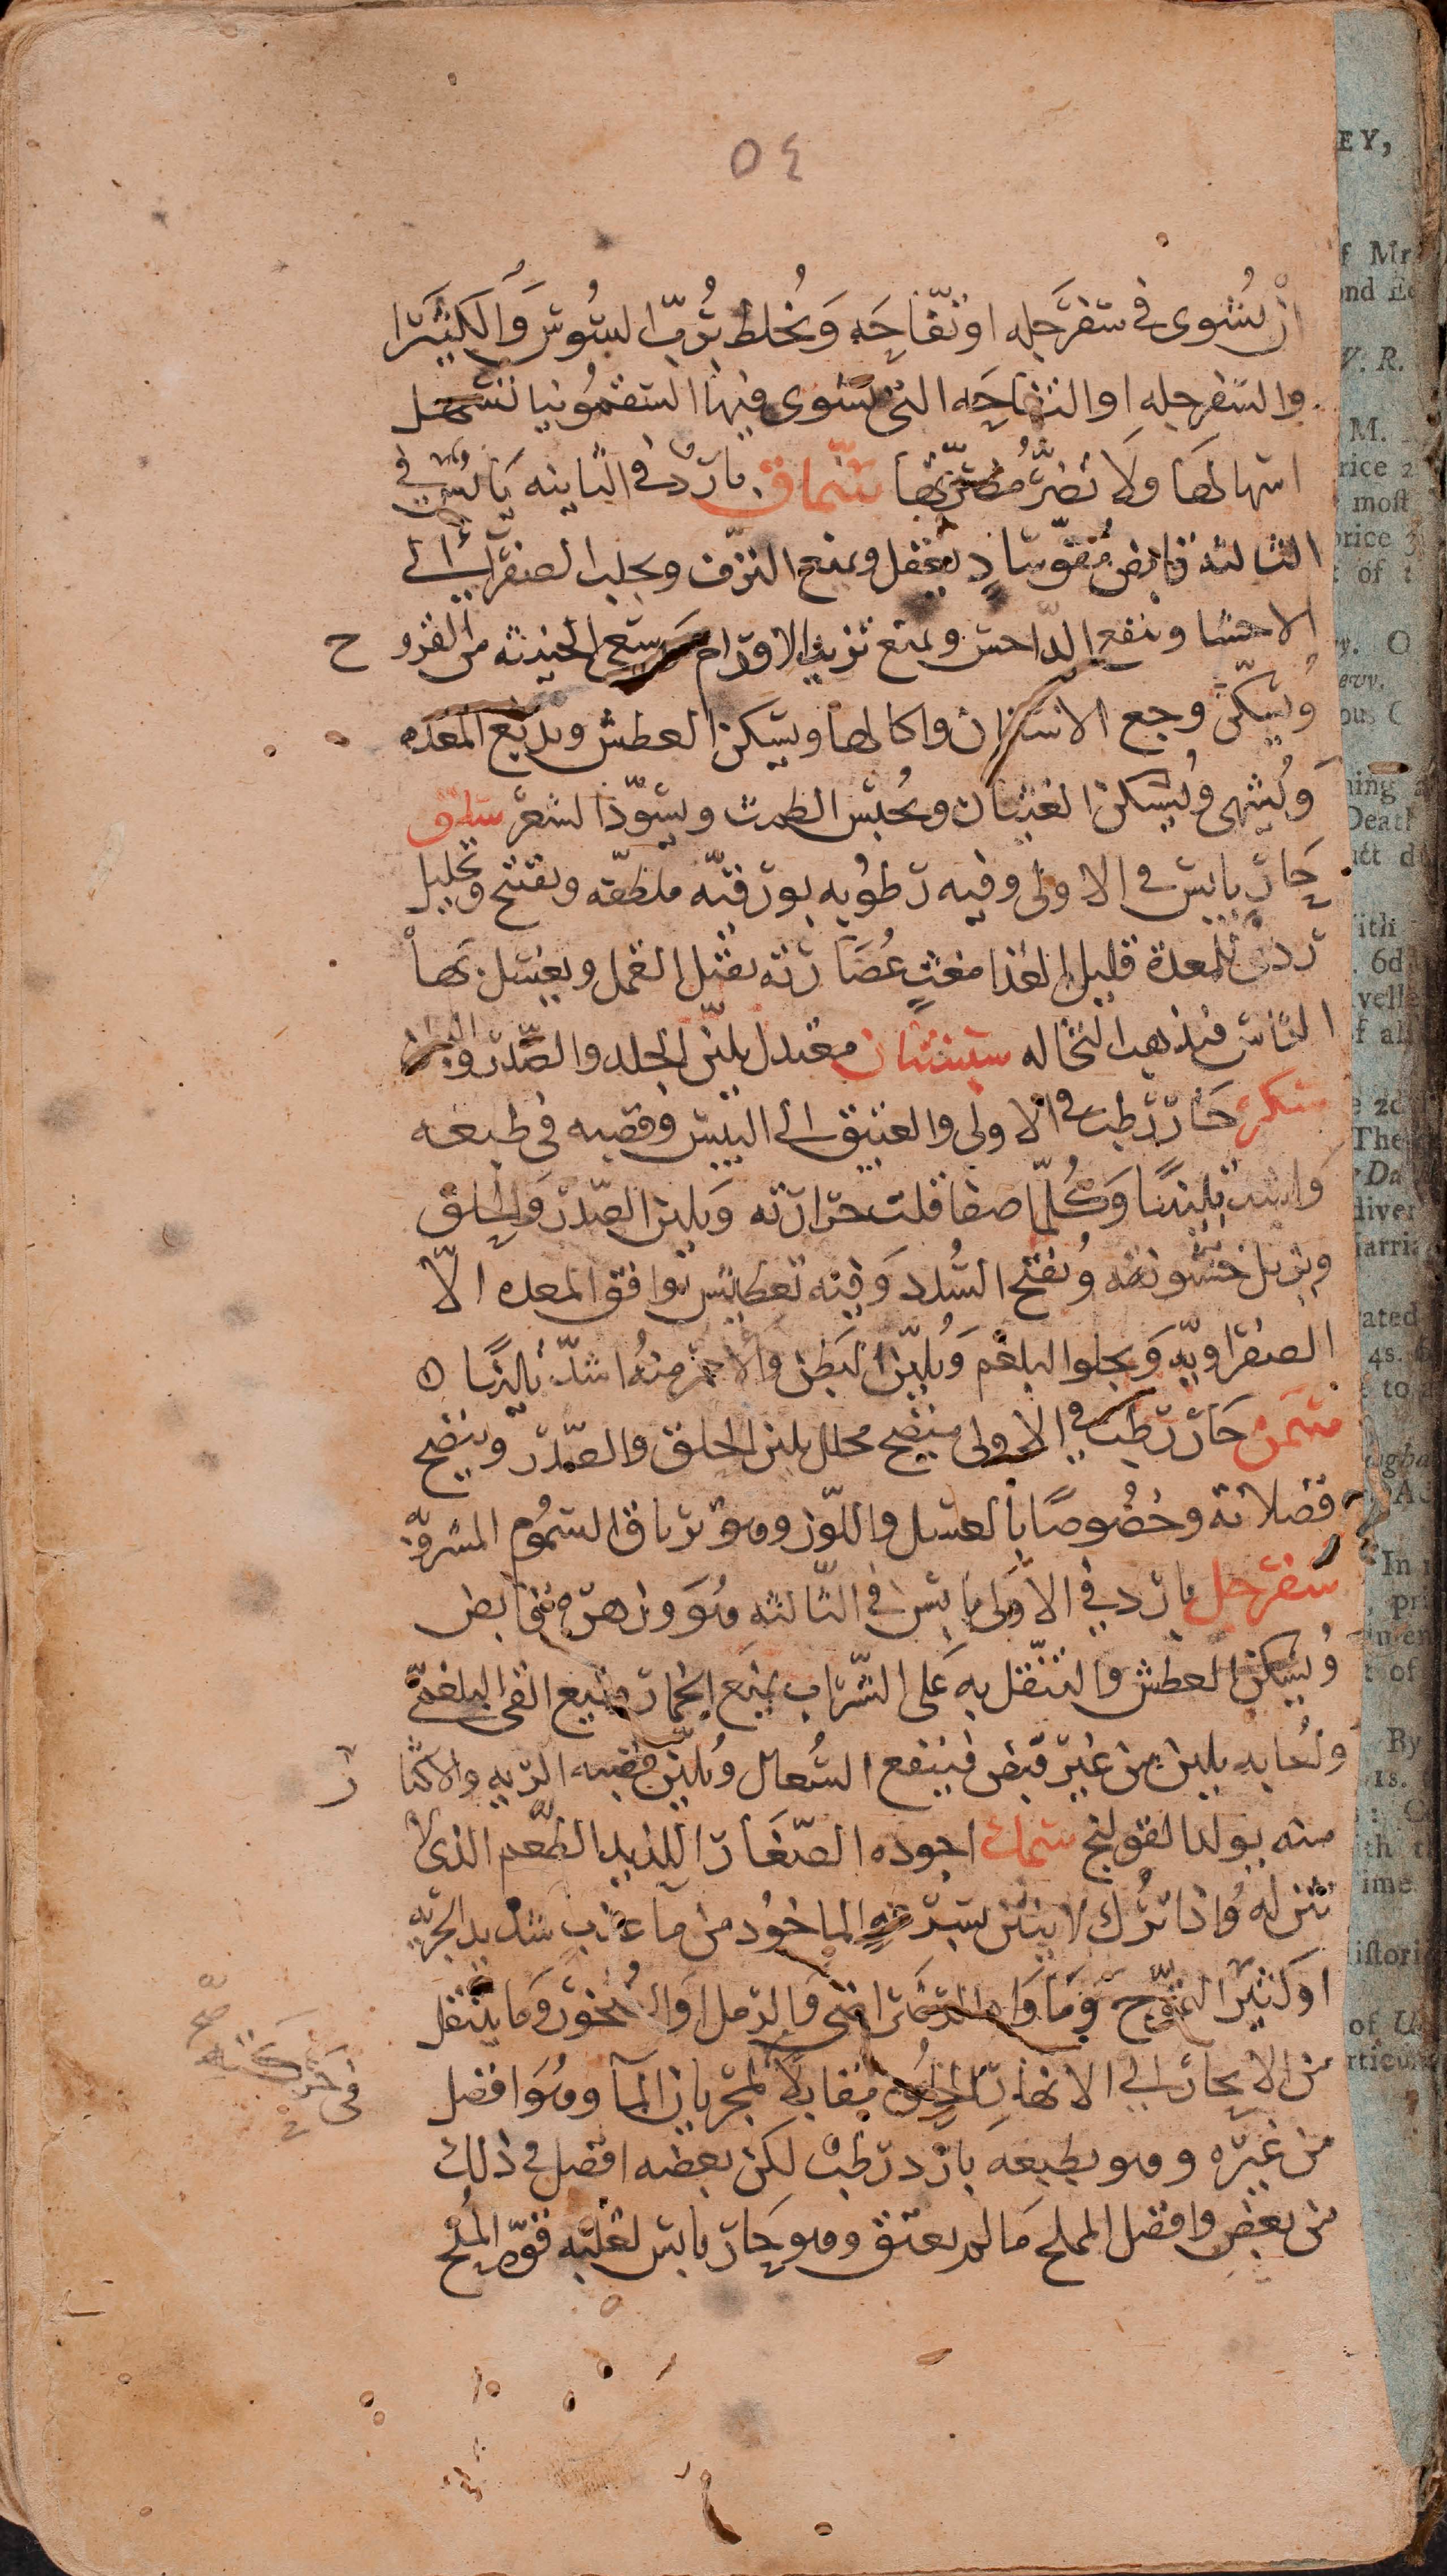 ٥٤
ان يُشوى في سفرجله او تفّاحَه وَيُخلط برُبّ السُوس وَالكثيرا
والسّفرجله او التفاحَه التي تشوى فيها السقمُونيا تسهل
اسهالها ولا تضرّ مضرّتها سُمّاق بارد في الثانيه يَابس في
الثالثه قابض مُقوّ سادٍ يعقل ويمنع النزف وتجلب الصفرا الى
الاحشا وينفع الدّاحس ويمنع تزيد الاورام وسعي الخبيثه من القرو ح
وُيسَكّن وجع الاسنان واكالها ويسكن العطش ويدبغ المعده
وَيُشهى وُيسكن الغثيان ويُحبس الطمث ويسوّد الشعر سلق
حَارّ يابس في الاولى وفيه رطوبه بورقيّه ملطفه وتفتح وتحليل
ردي للمعدة قليل الغذا مغثٍ عُصَارته تقتل القمل ويغسل بها
الراس فيذهب النخاله سبستان معتدل يليّن الحلق والصّدر والبطن
سكر حَارّ رطب في الاولى والعتيق الى اليبس وقصبه في طبعه
وَاشد تليينًا وَكُلّما صفا قلت حرارته وَيلين الصّدر وَالحلق
ويزيل خشونته وُيفتح السُدد وَفيه تعطيش يوافق المعده الّا
الصفراويّه وَيجلوا البلغم وَيُليّن البَطن وَالاحمر منهُ اشدّ تلينًا ه
سَمن حَارّ رَطب في الاولى منضج محلل يلين الحلق والصّدر وينضج
فضلاته وخصُوصًا بالعسل واللّوز وهو ترياق السمُوم المشروبه
سفرجل بارد في الاولى يابس في الثّالثه هُوَ وزهره قابض
وُيسكن العطش والتنقّل به عَلى الشّراب يمنع الخمار ويمنع القى البلغمّى
وَلعَابه يلين من غير قبض فينفع السُّعال وُيليّن قصبه الرّيه والاكثا ر
منه يولد القولنج سَمك اجوده الصّغَار اللذيد الطّعم الذى لا
وَاذا تُرك لا ينتن بسرعه الماخُود من مآ عذب شديد الجريه
او كثير التموّج وَمَاوَاه والرمل او الصُخور وَما ينتقل
من الابحار الى الانهار الحلُوه مقابلًا لجريان المآ وهُوَ افضل
في حركته صح
من غيره وهو بطبعه بارد رطب لكن بعضه افضل في ذلك
من بعضٍ وافضل المملح مَا لم يعتق وهو حَار يابس لغلبه قوّه المُلح